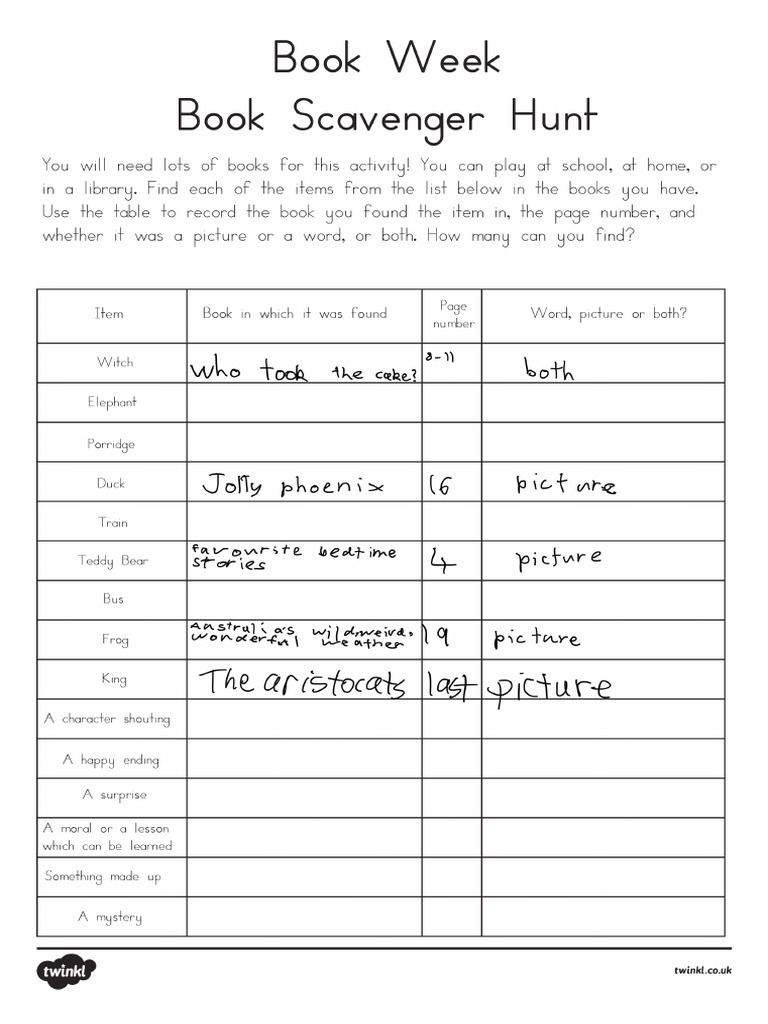 Book Week
Book Scavenger Hunt
You will need lots of books for this activity! You can play at school, at home, or
in a library. Find each of the items from the list below in the books you have.
Use the table to record the book you found the item in, the page number, and
whether it was a picture or a word, or both. How many can you find?
Item Book in which it was found Page number Word, picture or both?
Witch who took the cake? 8-11 both
Elephant
Porridge
Duck Jolly phoenix 16 picture
Train
Teddy Bear favourite bedtime
stories 4 picture
Bus
Frog Australia's wild, weird,
wonderful weather 19 picture
King The aristocats last picture
A character shouting
A happy ending
A surprise
A moral or a lesson
which can be learned
Something made up
A mystery
twinkl
twinkl.co.uk